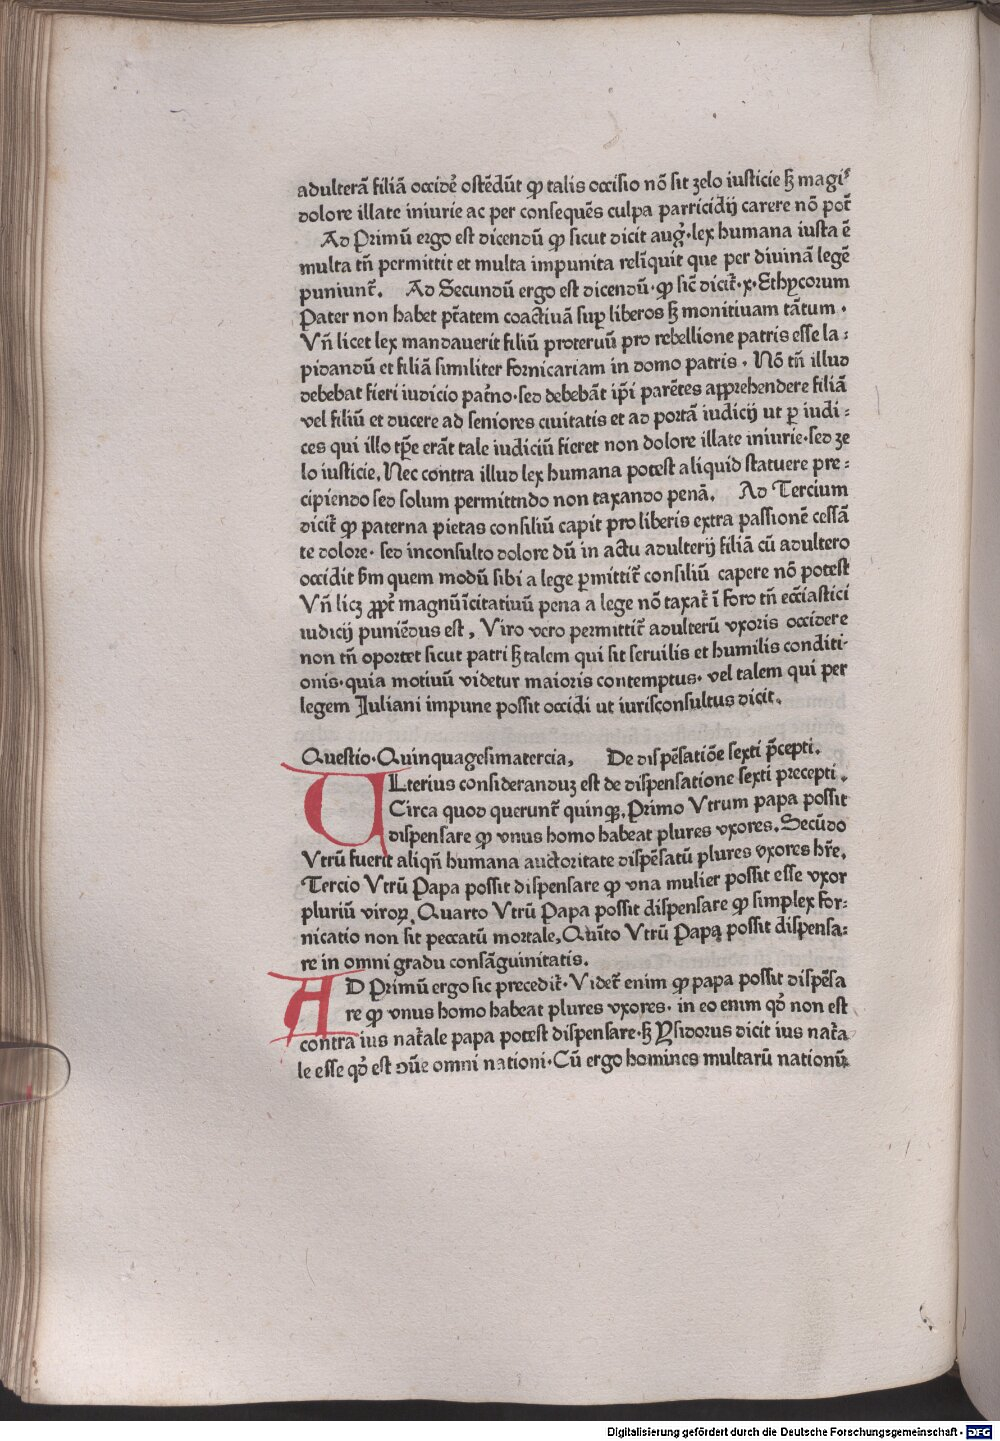 adulterā filiā occidēͬ ostēdūt ꝙ talis occisio nō sit zelo iusticie sꝫ magiˢ
dolore illate iniurie ac per consequēs culpa parricidij carere nō pot̄
Ad Primū ergo est dicendū ꝙ sicut dicit aug̾·lex humana iusta ē
multa tn̄ permittit et multa impunita reliͥquit que per diuinā legē
puniunt᷑. Ad Secundū ergo est dicendū·ꝙ sic̄ dicit᷑·x·Ethycorum
Pater non habet pt̄atem coactiuā suꝑ liberos sꝫ monitiuam tātum·
Vn̄ licet lex mandauerit filiū proteruū pro rebellione patris esse la⸗
pidandū et filiā similiter fornicariam in domo patris· Nō tn̄ illud
debebat fieri iudicio pat̾no·sed debebāt ip̄i parētes apprehendere filiā
vel filiū et ducere ad seniores ciuitatis et ad portā iudicij ut ꝑ iudi⸗
ces qui illo tp̄e erāt tale iudiciū fieret non dolore illate iniurie·sed ze
lo iusticie. Nec contra illud lex humana potest aliquid statuere pre⸗
cipiendo sed solum permittndo non taxando penā. Ad Tercium
dicit᷑ ꝙ paterna pietas consiliū capit pro liberis extra passionē cessā
te dolore· sed inconsulto dolore dū in actu adulterij filiā cū adultero
occidit ẜm quem modū sibi a lege ꝑmittit᷑ consiliū capere nō potest
Vn̄ licꝫ ꝓpt̾ magnū īcitatiuū pena a lege nō taxat᷑ ī foro tn̄ ecc̄iastici
iudicij puniēdus est, Viro vero permittit᷑ adulterū vxoris occidere
non tn̄ oportet sicut patri sꝫ talem qui sit seruilis et humilis conditi⸗
onis·quia motiuū videtur maioris contemptus· vel talem qui per
legem Juliani impune possit occidi ut iurisconsultus dicit.
Questio·Quinquagesimatercia, De dispēsatiōe sexti p̄cepti.
VLterius consideranduꝫ est de dispensatione sexti precepti.
Circa quod querunt᷑ quinqꝫ. Primo Vtrum papa possit
dispensare ꝙ vnus homo habeat plures vxores. Secūdo
Vtrū fuerit aliqn̄ humana auctoritate dispēsatū plures vxores hr̄e.
Tercio Vtrū Papa possit dispensare ꝙ vna mulier possit esse vxor
pluriū viroꝝ. Quarto Vtrū Papa possit dispensare ꝙ simplex for⸗
nicatio non sit peccatū mortale, Quīto Vtrū Papa possit dispensa⸗
re in omni gradu consāguinitatis.
AD Primū ergo sic precedit᷑· Videt᷑ enim ꝙ papa possit dispēsa
re ꝙ vnus homo habeat plures vxores· in eo enim qd̾ non est
contra ius nat᷑ale papa potest dispensare·sꝫ Ysidorus dicit ius nat᷑a
le esse qd̾ est ꝯūe omni nationi·Cū ergo homines multarū nationū
Digitalisierung gefördert durch die Deutsche Forschungsgemeinschaft - DFG